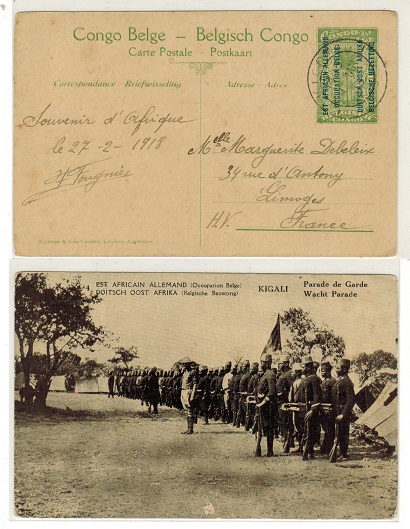 Congo Belge – Belgisch Congo
Carte Postale - Postkaart
Correspondance - Briefwisseling
Adresse - Adres
EST AFRICAIN ALLEMAND
OCCUPATION BELGE
DUITSCH OOST AFRIKA
BELGISCHE BEZETTING
Souvenir d'Afrique
le 27-2-1918
Melle Marguerite Debeleix
34 rue d'Antony
Limoges
H.V. France
EST AFRICAIN ALLEMAND (Occupation Belge)
DUITSCH OOST AFRIKA (Belgische Bezetting)
KIGALI
Parade de Garde
Wacht Parade